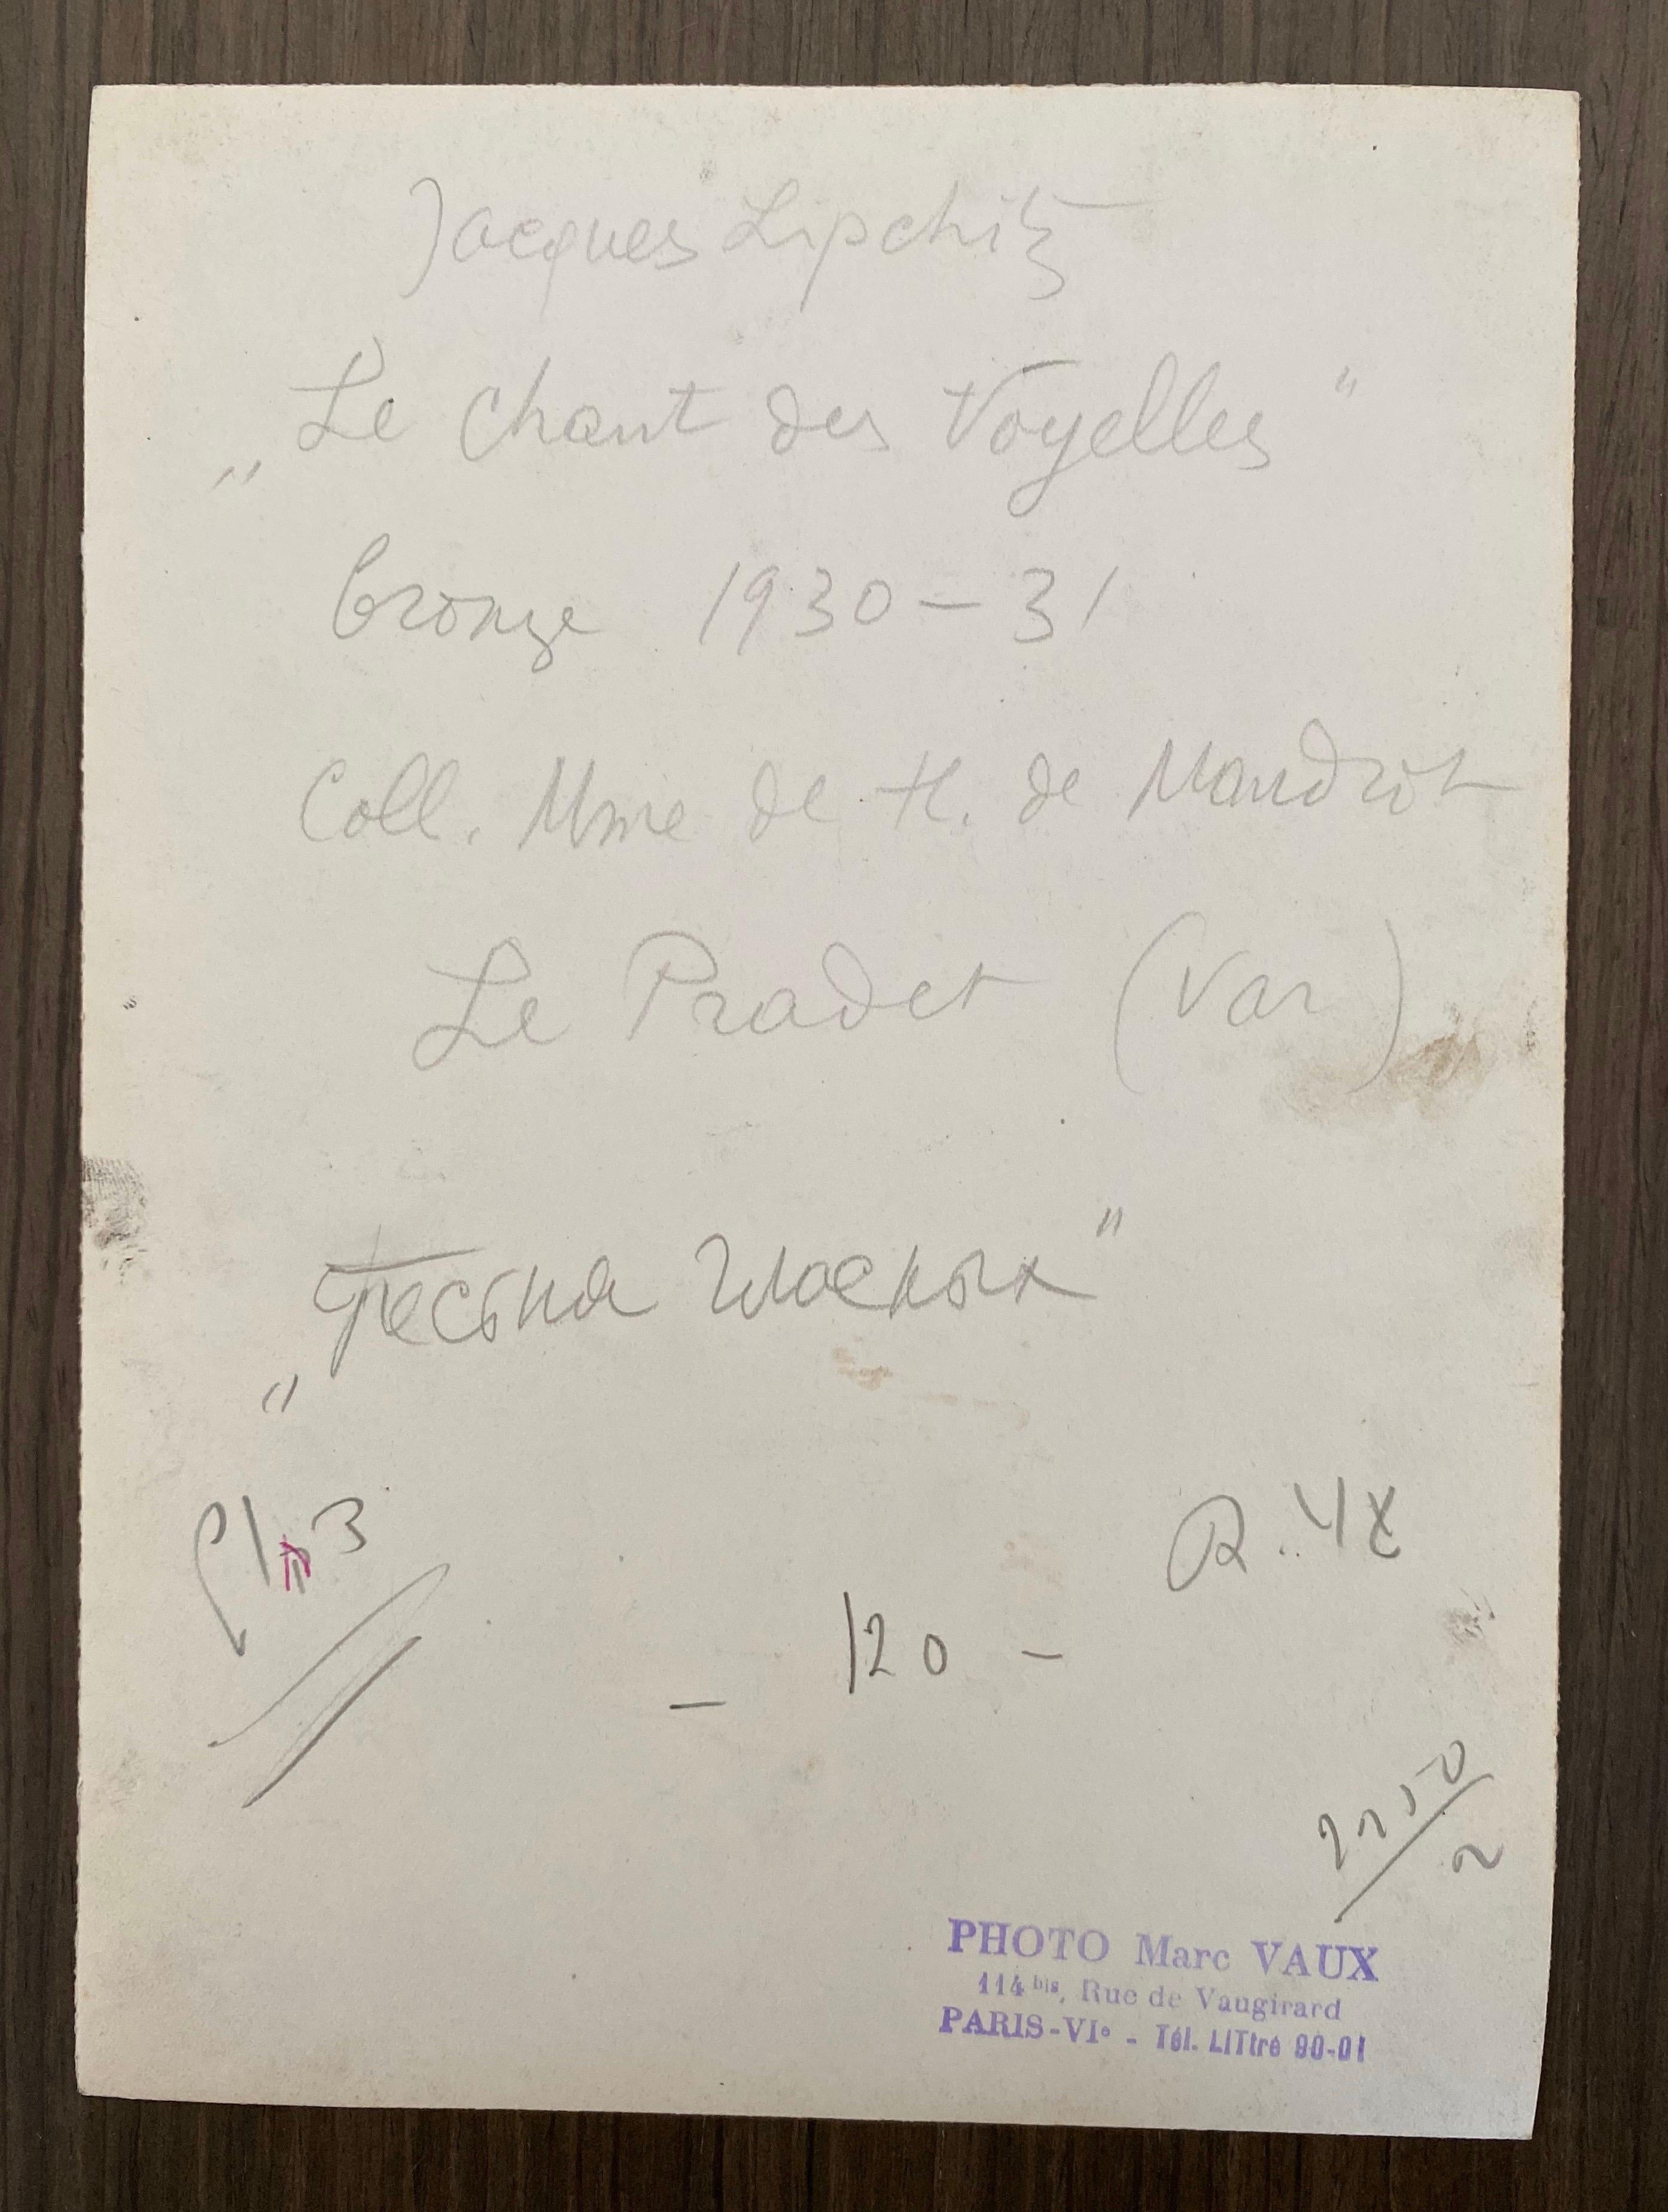 Jacques Lipchitz
„Le Chant des Voyelles"
bronze 1930-31
Coll. Mme de H. de Mandrot
Le Pradet (Var)
„Песьна гласных"
3
R. 48
- 120 -
PHOTO Marc VAUX
114 bis, Rue de Vaugirard
PARIS-VIe - Tél. LITtré 90-01